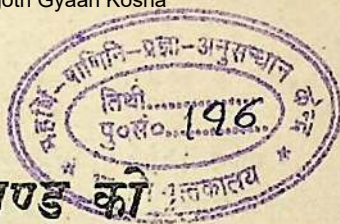 Gyaan Kosha
महर्षि-पाणिनि-प्रज्ञा-अनुसन्धान केन्द्र
तिथी..............
पु०सं०....196
पुस्तकालय
ण्ड को